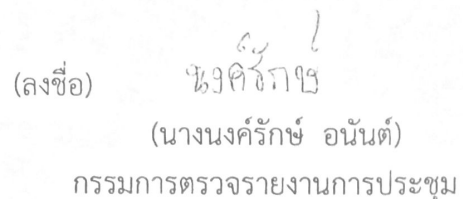 (ลงชื่อ) นงค์รักษ์
(นางนงค์รักษ์ อนันต์)
กรรมการตรวจรายงานการประชุม